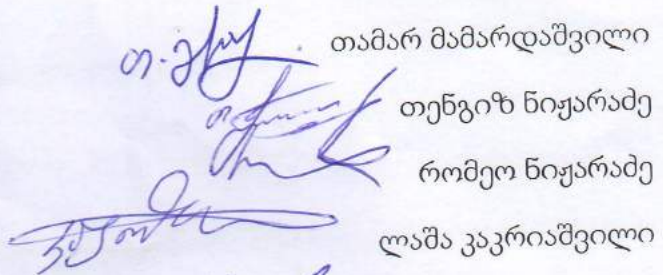 თამარ მამარდაშვილი
თენგიზ ნიჟარაძე
რომეო ნიჟარაძე
ლაშა კაკრიაშვილი